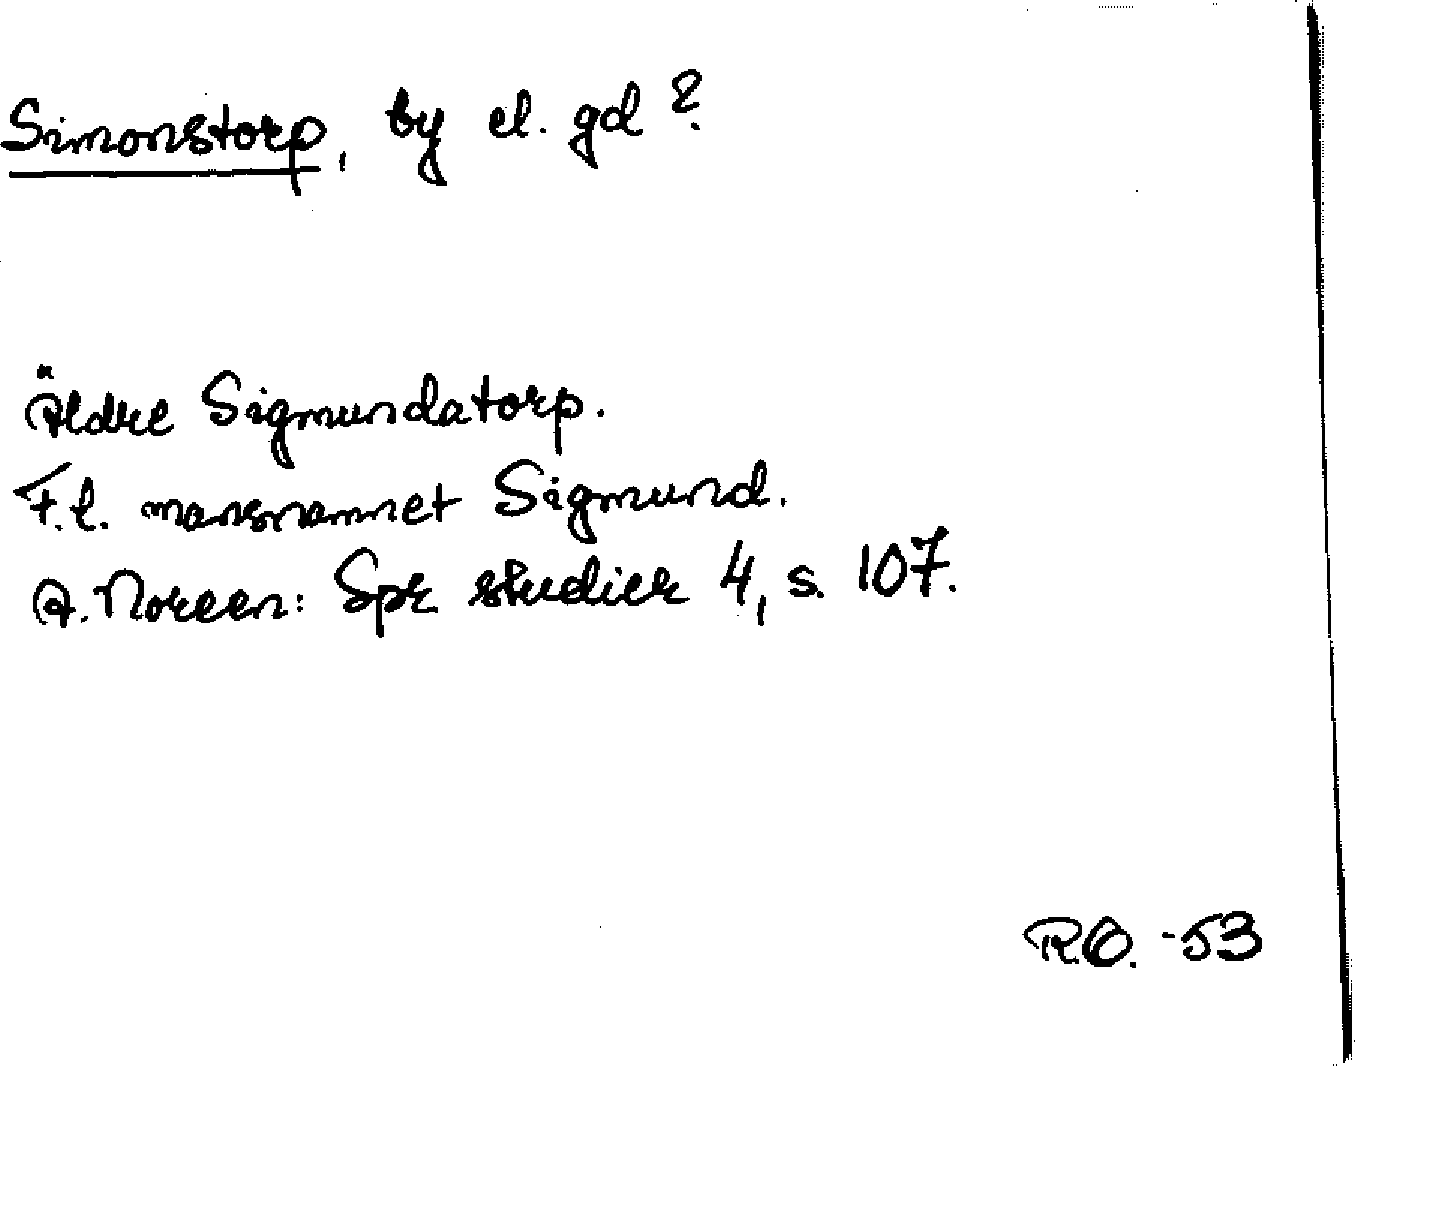 Simonstorp, by el. gd ?
Äldre Sigmundatorp.
F.t. mansnamnet Sigmund.
A. Noreen: Spr studier 4, s. 107.
R.Ö. -53